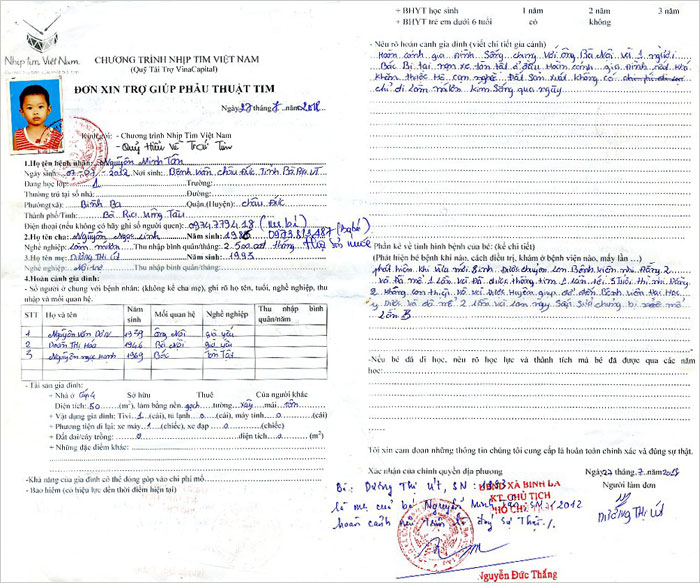 Nhịp tim Việt Nam
CHƯƠNG TRÌNH NHỊP TIM VIỆT NAM
(Quỹ Tài Trợ VinaCapital)
ĐƠN XIN TRỢ GIÚP PHẪU THUẬT TIM
Ngày 27 tháng 7 năm 2018
Kính gởi: - Chương trình Nhịp Tim Việt Nam
- Quỹ Hiểu Về Trái Tim
1.Họ tên bệnh nhân: Nguyễn Minh Tân
Ngày sinh: 2012 Nơi sinh: Bệnh viện châu Đức Tỉnh Bà Rịa VT
Đang học lớp: 1 Trường:
Thường trú tại số nhà: Đường:
Phường(xã): Bình Ba Quận (Huyện): châu Đức
Thành phố/Tỉnh: Bà Rịa Vũng Tàu
Điện thoại (nếu không có hãy ghi số người quen): 0974779418 (mẹ bé)
2.Họ tên cha: Nguyễn Ngọc Linh năm sinh: 1986
Nghề nghiệp: Làm mướn Thu nhập bình quân/tháng: 2.500.000đ tháng
3.Họ tên mẹ: DƯƠNG THỊ ÚT năm sinh: 1993
Nghề nghiệp: Nội trợ Thu nhập bình quân/tháng:
4.Hoàn cảnh gia đình:
- Số người ở chung với bệnh nhân: (không kể cha mẹ), ghi rõ họ tên, tuổi, nghề nghiệp, thu
nhập và mối quan hệ.
STT Họ và tên Năm sinh Mối quan hệ Nghề nghiệp Thu nhập bình quân/năm
1 Nguyễn Văn 1939 Ông Nội già yếu
2 Đoàn Thị Hoa 1946 Bà Nội già yếu
3 Nguyễn ngọc minh 1969 Bác Tàn Tật
- Tài sản gia đình:
+ Nhà ở Cấp 4 Sở hữu Thuê Của người khác
Diện tích: 50 (m²), làm bằng nền gạch tường xây mái tôn
+ Vật dụng gia đình: Tivi 1 (cái), tủ lạnh 0 (cái), máy tính 0 (cái)
+ Phương tiện đi lại: xe máy 1 (chiếc), xe đạp 0 (chiếc)
+ Đất đai/cây trồng: 0 diện tích 0 (m²)
+ Những đặc điểm khác:
-Khả năng của gia đình có thể đóng góp vào chi phí mổ
- Bảo hiểm (có hiệu lực đến thời điểm hiện tại)
+ BHYT học sinh 1 năm 2 năm 3 năm
+ BHYT trẻ em dưới 6 tuổi có không
- Nêu rõ hoàn cảnh gia đình (viết chi tiết gia cảnh)
Hoàn cảnh gia đình Sống chung với ông Bà Nội và 1 người
Bác Bị tai nạn xe tàn tật ở đầu Hoàn cảnh gia Đình
khăn thuộc Hộ cận nghèo Đất Sản xuất không có
chỉ đi làm mướn kiếm sống qua ngày
Phần kê về tình hình bệnh của bé: (kể chi tiết)
(Phát hiện bệnh khi nào, cách điều trị, khám ở bệnh viện nào, mấy lần ...)
phát hiện khi vừa mới Sinh Được chuyển lên Bệnh viện nhi Đồng 2
và Đã mổ 1 lần và Đã được thông tim 1 lần tới 5 tuổi thì nhi Đồng
2 không can thiệp
lần 3
-Nếu bé đã đi học, nêu rõ học lực và thành tích mà bé đã được qua các năm
học:
Tôi xin cam đoan những thông tin chúng tôi cung cấp là hoàn toàn chính xác và đúng sự thật.
Xác nhận của chính quyền địa phương
Ngày 27 tháng 7 năm 2018
Người làm đơn
DƯƠNG THỊ ÚT
Bà: Dương Thị Út, SN: 1993
là mẹ của bé Nguyễn Minh Tân SN: 2012
hoàn cảnh nêu trên là đúng sự thật./.
UBND XÃ BÌNH BA
KT. CHỦ TỊCH
PHÓ CHỦ TỊCH
Nguyễn Đức Thắng